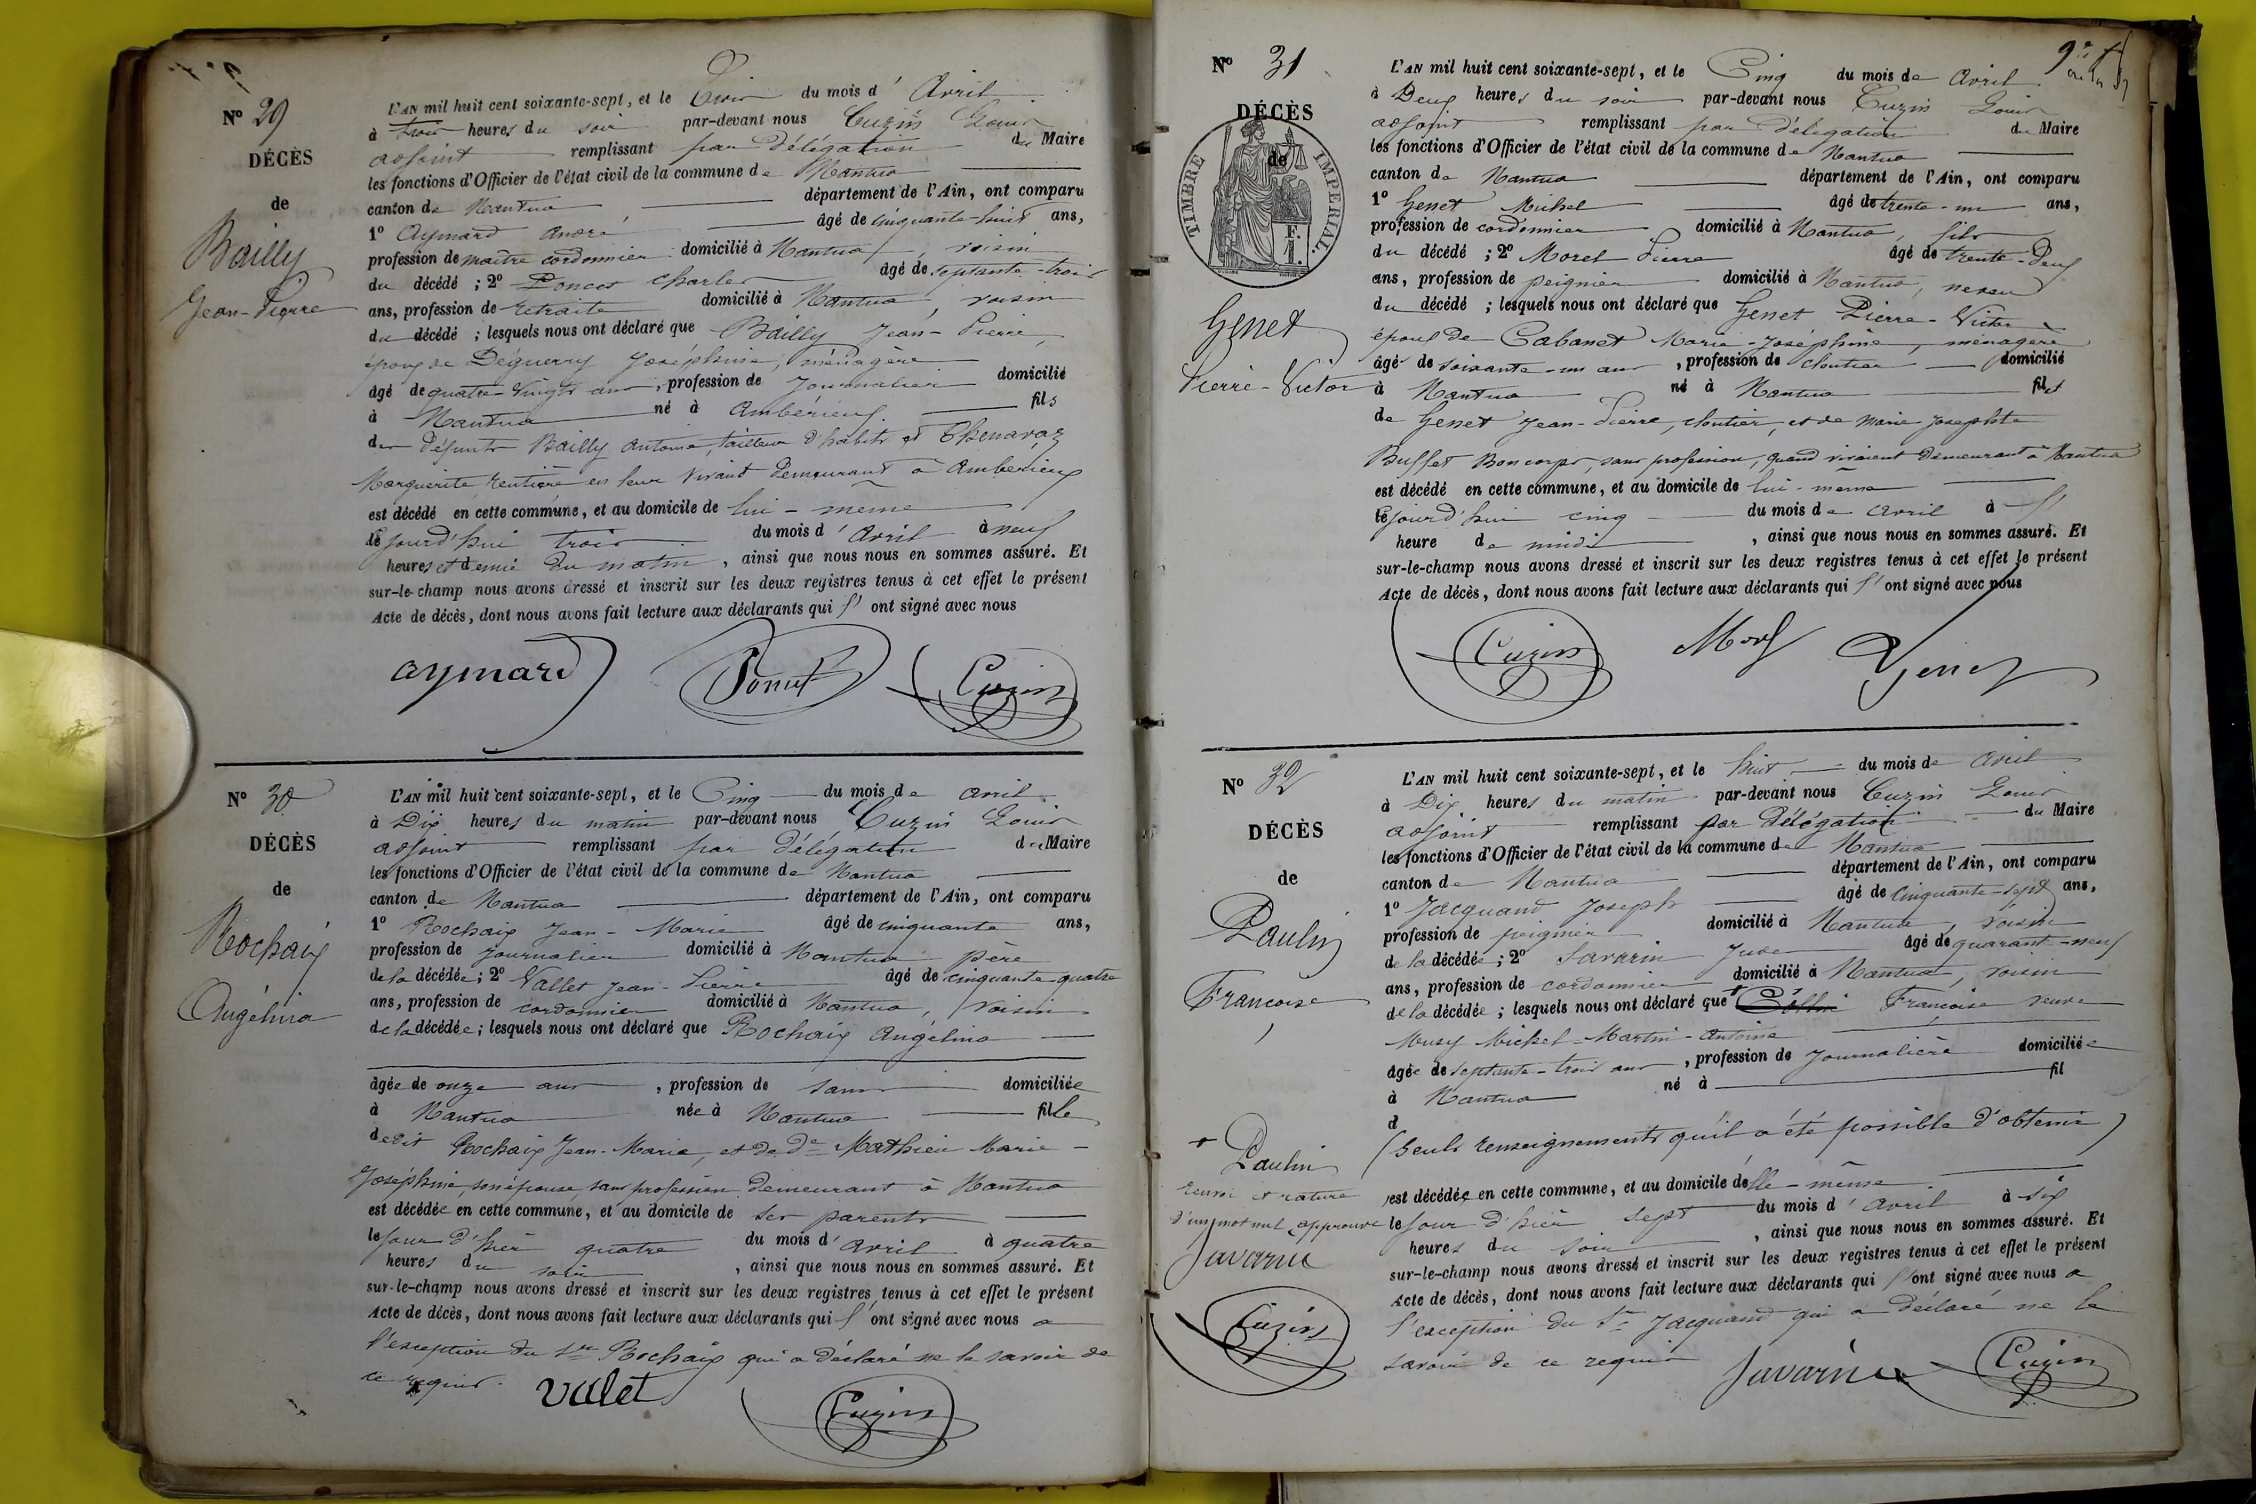 Nº 29
DÉCÈS
de
Bailly
Jean-Pierre
L'AN mil huit cent soixante-sept, et le Trois du mois d' Avril
à trois heures du soir par-devant nous Cuzin Louis
adjoint remplissant par Délégation du Maire
les fonctions d'Officier de l'état civil de la commune de Nantua
canton de Nantua département de l'Ain, ont comparu
1º Aymard André âgé de cinquante-huit ans,
profession de maître cordonnier domicilié à Nantua, voisin
du décédé ; 2º Poncet Charles âgé de septante-trois
ans, profession de retraité domicilié à Nantua, voisin
du décédé ; lesquels nous ont déclaré que Bailly Jean-Pierre,
époux de Deguerry Joséphine, ménagère
âgé de quatre-vingts ans, profession de Journalier domicilié
à Nantua né à Ambérieux fils
des défunts Bailly Antoine, tailleur d'habits et Thenavaz
Marguerite rentière en leur vivant demeurant à Ambérieux
est décédé en cette commune, et au domicile de lui-même
cejourd'hui trois du mois d' Avril à neuf
heures et demie du matin, ainsi que nous nous en sommes assuré. Et
sur-le-champ nous avons dressé et inscrit sur les deux registres tenus à cet effet le présent
Acte de décès, dont nous avons fait lecture aux déclarants qui l' ont signé avec nous
aymard Poncet Cuzin
Nº 30
DÉCÈS
de
Rochaix
Angélina
L'AN mil huit cent soixante-sept, et le Cinq du mois de avril
à Dix heures du matin par-devant nous Cuzin Louis
adjoint remplissant par Délégation du Maire
les fonctions d'Officier de l'état civil de la commune de Nantua
canton de Nantua département de l'Ain, ont comparu
1º Rochaix Jean-Marie âgé de cinquante ans,
profession de journalier domicilié à Nantua père
de la décédée ; 2º Vallet Jean-Pierre âgé de cinquante-quatre
ans, profession de cordonnier domicilié à Nantua, voisin
de la décédée ; lesquels nous ont déclaré que Rochaix Angélina
âgée de onze ans, profession de sans domiciliée
à Nantua née à Nantua fille
dedit Rochaix Jean-Marie, et de De Mathieu Marie-
Joséphine, son épouse, sans profession demeurant à Nantua
est décédée en cette commune, et au domicile de ses parents
le jour d'hier quatre du mois d' avril à quatre
heures du soir, ainsi que nous nous en sommes assuré. Et
sur-le-champ nous avons dressé et inscrit sur les deux registres tenus à cet effet le présent
Acte de décès, dont nous avons fait lecture aux déclarants qui l' ont signé avec nous à
l'exception du sr Rochaix qui a déclaré ne le savoir de
ce requis.
valet Cuzin
Nº 31
DÉCÈS
de
TIMBRE IMPERIAL.
1 F.
Genet
Pierre-Victor
L'AN mil huit cent soixante-sept, et le Cinq du mois de Avril
à Deux heures du soir par-devant nous Cuzin Louis
adjoint remplissant par Délégation du Maire
les fonctions d'Officier de l'état civil de la commune de Nantua
canton de Nantua département de l'Ain, ont comparu
1º Genet Michel âgé de trente-un ans,
profession de cordonnier domicilié à Nantua, fils
du décédé ; 2º Morel Pierre âgé de trente-Deux
ans, profession de peignier domicilié à Nantua, neveu
du décédé ; lesquels nous ont déclaré que Genet Pierre-Victor
époux de Cabanet Marie-Joséphine, ménagère
âgé de soixante-un ans, profession de cloutier domicilié
à Nantua né à Nantua fils
de Genet Jean-Pierre, cloutier, et de Marie Josephte
Buffet Boncorps, sans profession, quand vivaient demeurant à Nantua
est décédé en cette commune, et au domicile de lui-même
cejourd'hui cinq du mois de avril à l'
heure de midi, ainsi que nous nous en sommes assuré. Et
sur-le-champ nous avons dressé et inscrit sur les deux registres tenus à cet effet le présent
Acte de décès, dont nous avons fait lecture aux déclarants qui l' ont signé avec nous
Cuzin Morel Genet
Nº 32
DÉCÈS
de
Paulin
Françoise
L'AN mil huit cent soixante-sept, et le huit du mois de avril
à Dix heures du matin par-devant nous Cuzin Louis
adjoint remplissant par Délégation du Maire
les fonctions d'Officier de l'état civil de la commune de Nantua
canton de Nantua département de l'Ain, ont comparu
1º Jacquand Joseph âgé de Cinquante-sept ans,
profession de peignier domicilié à Nantua, voisin
de la décédée ; 2º Savarin Jude âgé de quarant-neuf
ans, profession de cordonnier domicilié à Nantua, voisin
de la décédée ; lesquels nous ont déclaré que + Françoise veuve
Musy Michel-Martin-Antoine
âgée de septante-trois ans, profession de journalière domiciliée
à Nantua né à fil
d
(Seuls renseignements qu'il a été possible d'obtenir)
est décédée en cette commune, et au domicile d'elle-même
le jour d'hier sept du mois d' Avril à six
heures du soir, ainsi que nous nous en sommes assuré. Et
sur-le-champ nous avons dressé et inscrit sur les deux registres tenus à cet effet le présent
Acte de décès, dont nous avons fait lecture aux déclarants qui l' ont signé avec nous à
l'exception du Sr Jacquand qui a déclaré ne le
savoir de ce requis
Savarin Cuzin
+ Paulin
renvoi et rature
d'un mot nul approuvé
Savarin
Cuzin